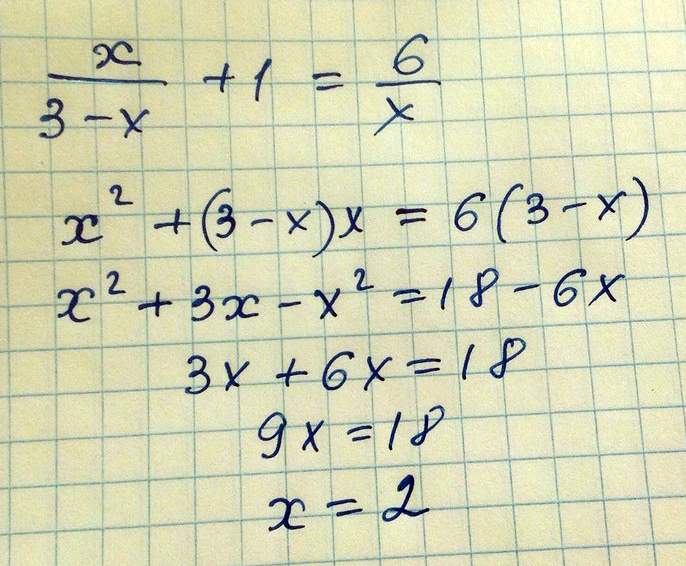 x/(3-x) + 1 = 6/x
x² + (3-x)x = 6(3-x)
x² + 3x - x² = 18 - 6x
3x + 6x = 18
9x = 18
x = 2